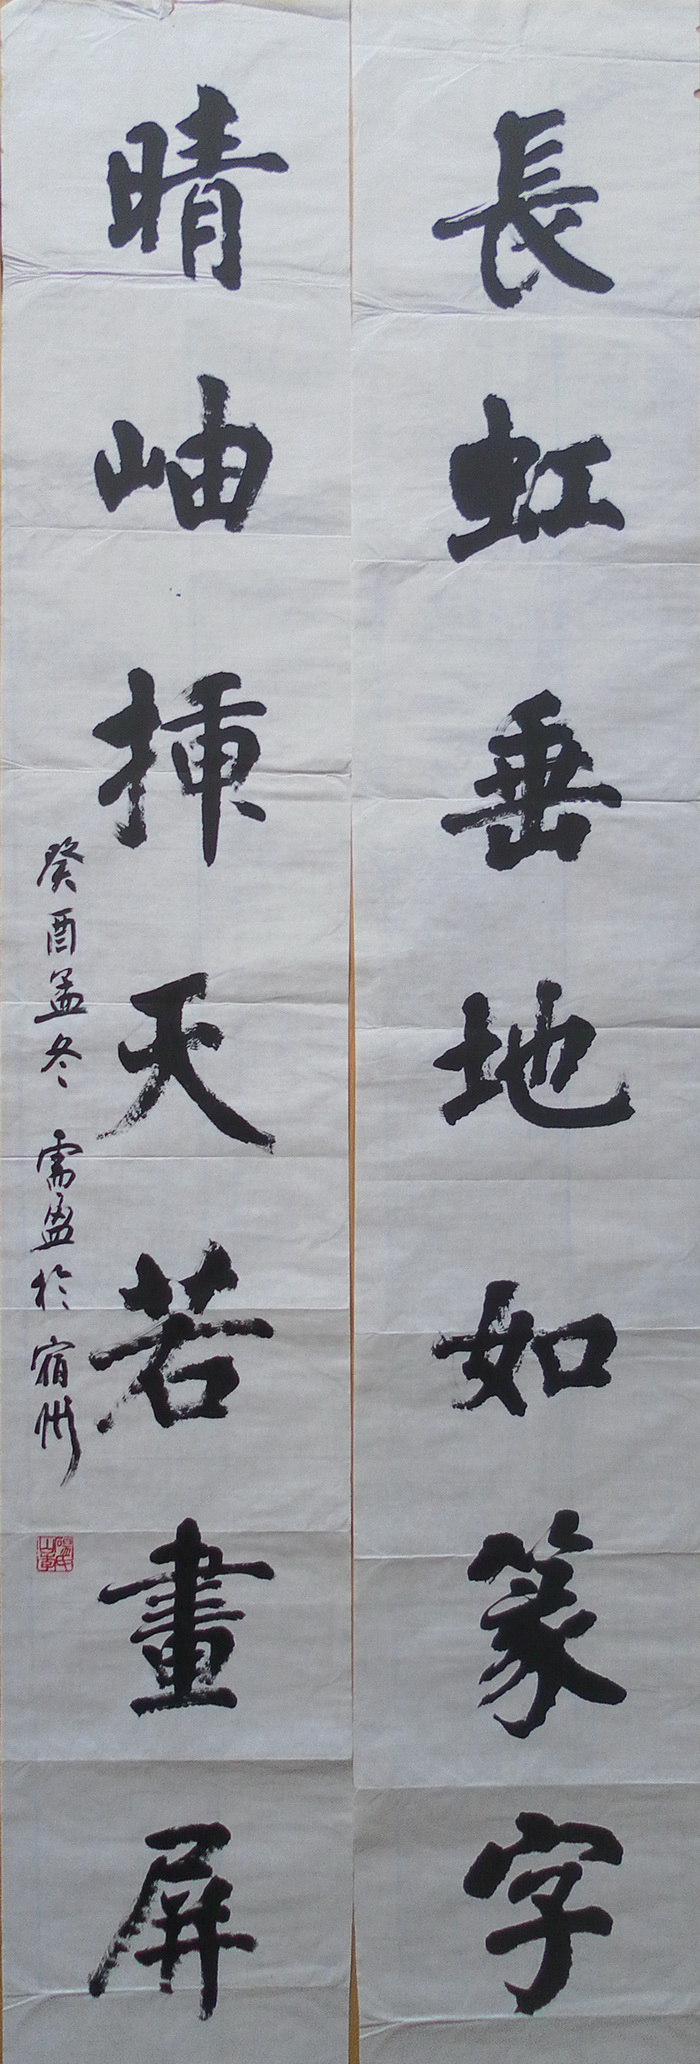 長虹垂地如篆字
晴岫揷天若畫屏
癸酉孟冬 需盈於宿州